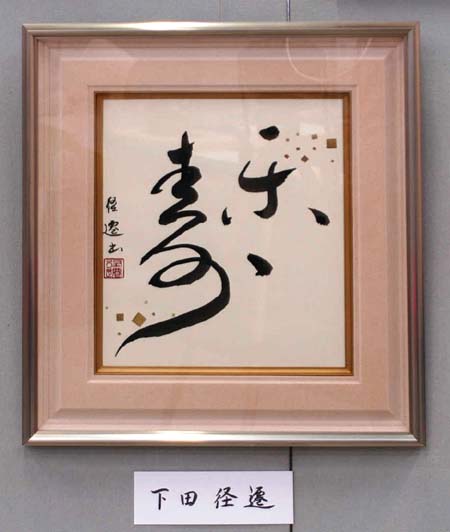 楽
寿
径遷書
下田径遷